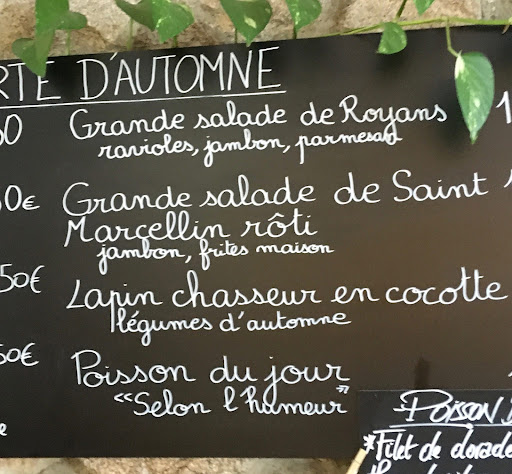 RTE D'AUTOMNE
Grande salade de Royans
ravioles, jambon, parmesan
0€ Grande salade de Saint
Marcellin rôti
jambon, frites maison
50€
Lapin chasseur en cocotte
légumes d'automne
50€
Poisson du jour
"Selon l'humeur"
POISSON
*Filet de dorade